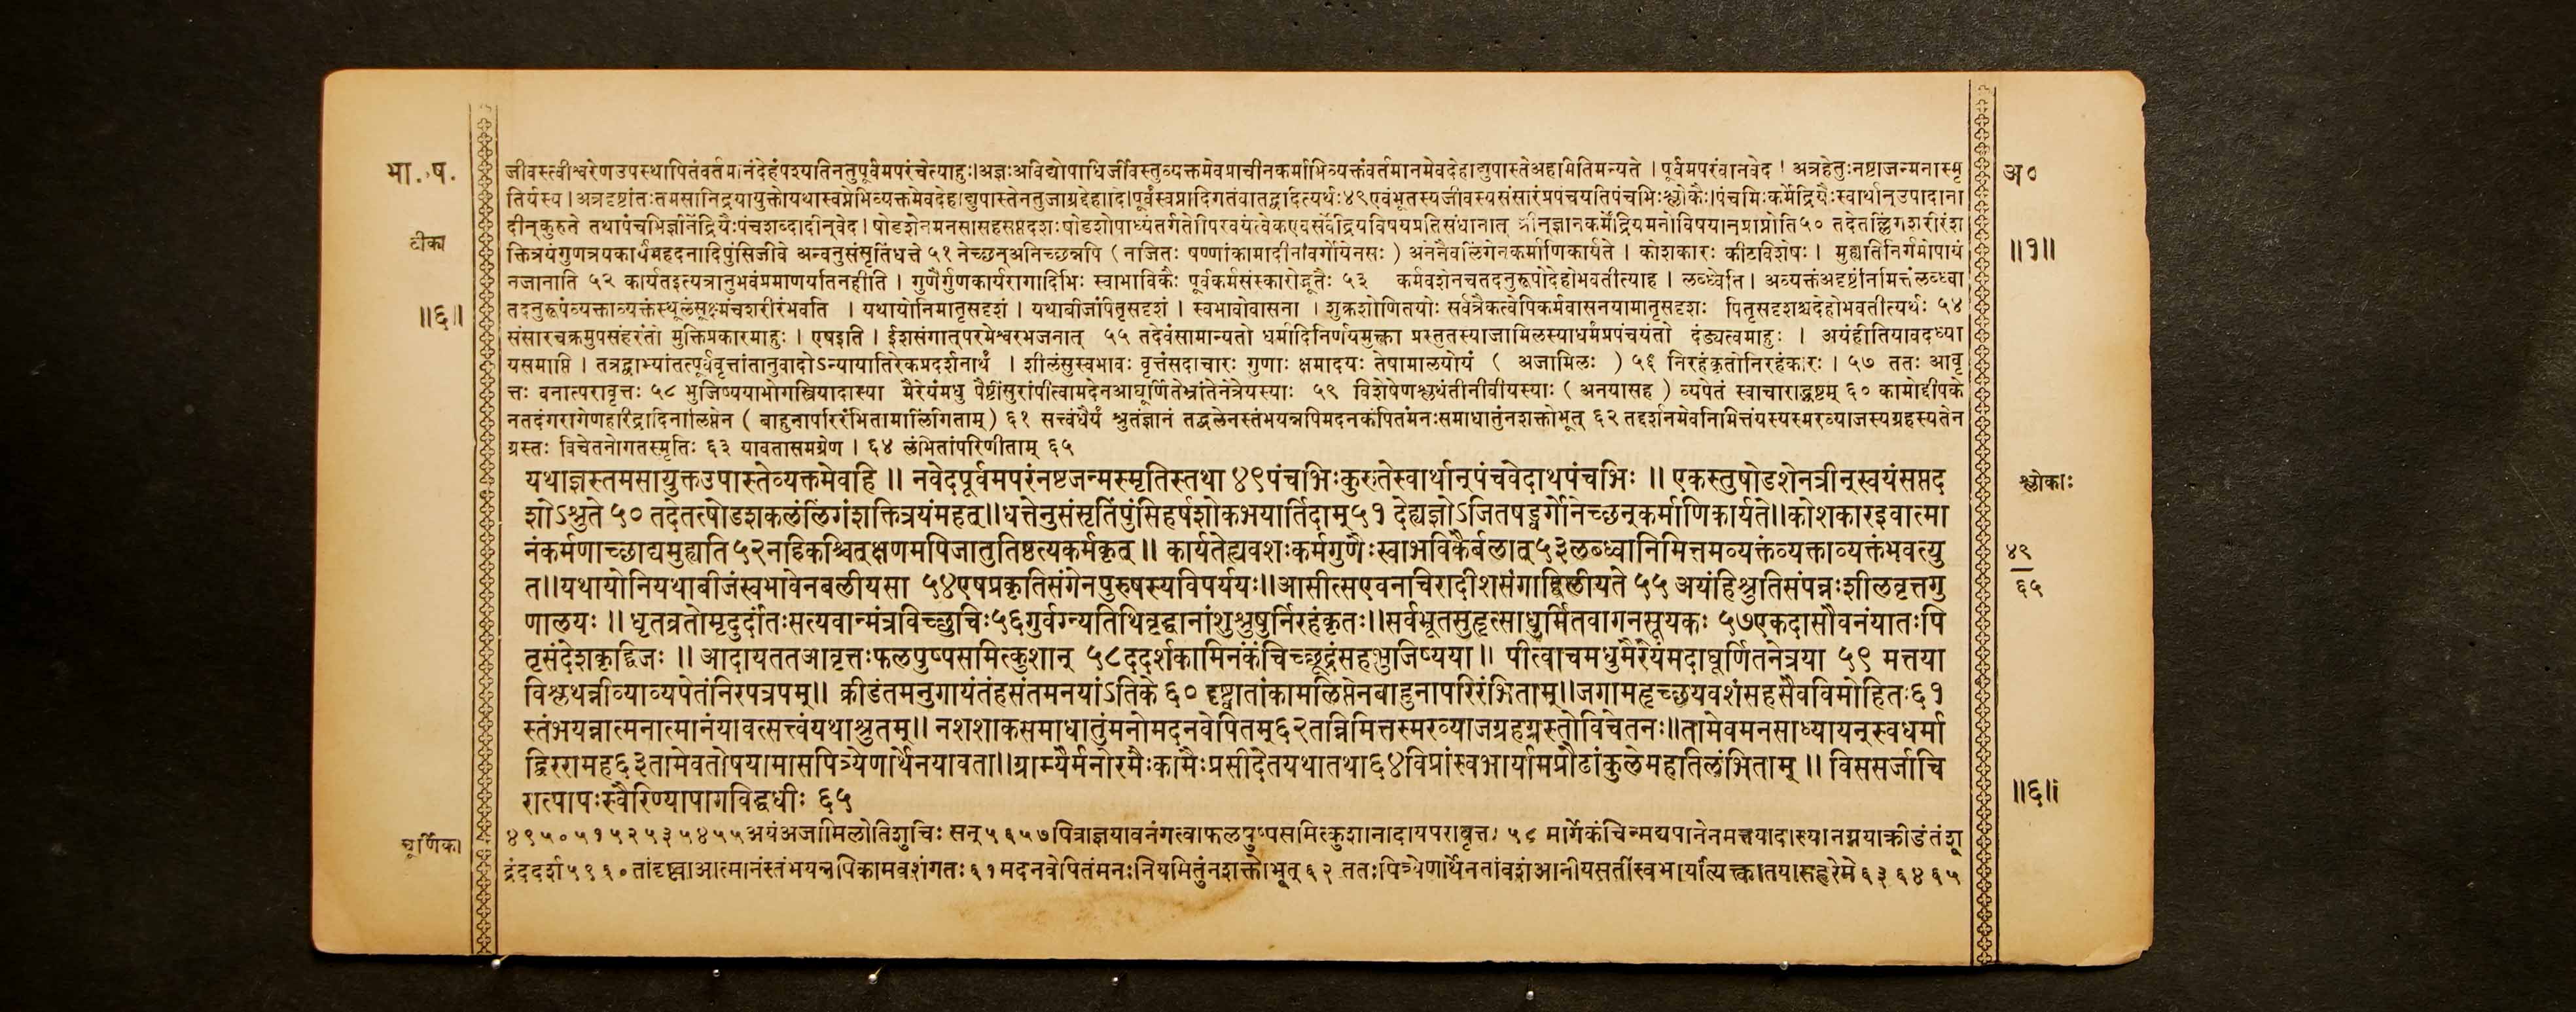 भा. ष.
जीवस्त्वीश्वरेणउपस्थापितंवर्तमानंदेहंपश्यतिनतुपूर्वमपरंचेत्याहुः।अज्ञःअविद्योपाधिर्जीवस्तुव्यक्तमेवप्राचीनकर्माभिव्यक्तंवर्तमानमेवदेहाद्युपास्तेअहमितिमन्यते । पूर्वमपरंवानवेद । अत्रहेतुःनष्टाजन्मनास्मृ
अ०
तिर्यस्य।अत्रदृष्टांतःतमसानिद्रयायुक्तोयथास्वप्नेभिव्यक्तमेवदेहाद्युपास्तेनतुजाग्रद्देहादि।पूर्वस्वप्नादिगतंवातद्वदित्यर्थः४९एवंभूतस्यजीवस्यसंसारंप्रपंचयतिपंचभिःश्लोकैः।पंचभिःकर्मेंद्रियैःस्वार्थान्उपादाना
दीन्कुरुते तथापंचभिर्ज्ञानेंद्रियैःपंचशब्दादीन्वेद। षोडशेनमनसासहसप्तदशःषोडशोपाध्यंतर्गतोपिस्वयंत्वेकएवसर्वेंद्रियविषयप्रतिसंधानात् त्रीन्ज्ञानकर्मेंद्रियमनोविषयान्प्राप्नोति५० तदेतल्लिंगशरीरंश
टीका
क्तित्रयंगुणत्रयकार्यंमहदनादिपुंसिजीवे अन्वनुसंसृतिंधत्ते ५१ नेच्छन्अनिच्छन्नपि ( नाजितः षण्णांकामादीनांवर्गोयेनसः ) अनेनैवलिंगेनकर्माणिकार्यते । कोशकारः कीटविशेषः । मुह्यतिनिर्गमोपायं
॥१॥
नजानाति ५२ कार्यतइत्यत्रानुभवंप्रमाणयतिनहीति । गुणैर्गुणकार्यैरागादिभिः स्वाभाविकैः पूर्वकर्मसंस्कारोद्भूतैः ५३ कर्मवशेनचतदनुरूपोदेहोभवतीत्याह । लब्ध्वेति । अव्यक्तंअदृष्टंनिमित्तंलब्ध्वा
॥६॥
तदनुरूपंव्यक्ताव्यक्तंस्थूलंसूक्ष्मंचशरीरंभवति । यथायोनिमातृसदृशं । यथाबीजंपितृसदृशं । स्वभावोवासना । शुक्रशोणितयोः सर्वत्रैकत्वेपिकर्मवासनयामातृसदृशः पितृसदृशश्चदेहोभवतीत्यर्थः ५४
संसारचक्रमुपसंहरंतो मुक्तिप्रकारमाहुः । एषइति । ईशसंगात्परमेश्वरभजनात् ५५ तदेवंसामान्यतो धर्मादिनिर्णयमुक्त्वा प्रस्तुतस्याजामिलस्याधर्मंप्रपंचयंतो दंड्यत्वमाहुः । अयंहीतियावदध्या
यसमाप्ति । तत्रद्वाभ्यांतत्पूर्ववृत्तांतानुवादोऽन्यायातिरेकप्रदर्शनार्थं । शीलंसुस्वभावः वृत्तंसदाचारः गुणाः क्षमादयः तेषामालयोयं ( अजामिलः ) ५६ निरहंकृतोनिरहंकारः । ५७ ततः आवृ
त्तः वनात्परावृत्तः ५८ भुजिष्ययाभोगस्त्रियादास्या मैरेयंमधु पैष्टींसुरांपीत्वामदेनआघूर्णितेभ्रांतेनेत्रेयस्याः ५९ विशेषेणश्लथंतीनीवीयस्याः ( अनयासह ) व्यपेतं स्वाचाराद्भ्रष्टम् ६० कामोद्दीपके
नतदंगरागेणहारिद्रादिनालिप्तेन ( बाहुनापरिरंभितामालिंगिताम् ) ६१ सत्त्वंधैर्यं श्रुतंज्ञानं तद्बलेनस्तंभयन्नपिमदनकंपितंमनःसमाधातुंनशक्तोभूत् ६२ तद्दर्शनमेवनिमित्तंयस्यस्मरव्याजस्यग्रहस्यतेन
ग्रस्तः विचेतनोगतस्मृतिः ६३ यावतासमग्रेण । ६४ लंभितांपरिणीताम् ६५
यथाज्ञस्तमसायुक्तउपास्तेव्यक्तमेवहि ॥ नवेदपूर्वमपरंनष्टजन्मस्मृतिस्तथा ४९पंचभिःकुरुतेस्वार्थान्पंचवेदाथपंचभिः ॥ एकस्तुषोडशेनत्रीन्स्वयंसप्तद
श्लोकाः
शोऽश्नुते ५० तदेतत्षोडशकलंलिंगंशक्तित्रयंमहत्॥धत्तेनुसंसृतिंपुंसिहर्षशोकभयार्तिदाम्५१ देह्यज्ञोऽजितषड्वर्गोनेच्छन्कर्माणिकार्यते॥कोशकारइवात्मा
नंकर्मणाच्छाद्यमुह्यति५२नहिकश्चित्क्षणमपिजातुतिष्ठत्यकर्मकृत् ॥ कार्यतेह्यवशःकर्मगुणैःस्वाभविकैर्बलात्५३लब्ध्वानिमित्तमव्यक्तंव्यक्ताव्यक्तंभवत्यु
४९
त॥यथायोनियथाबीजंस्वभावेनबलीयसा ५४एषप्रकृतिसंगेनपुरुषस्यविपर्ययः॥आसीत्सएवनाचिरादीशसंगाद्विलीयते ५५ अयंहिश्रुतिसंपन्नःशीलवृत्तगु
६५
णालयः ॥ धृतव्रतोमृदुर्दांतःसत्यवान्मंत्रविच्छुचिः५६गुर्वग्न्यतिथिवृद्धानांशुश्रुषुर्निरहंकृतः॥सर्वभूतसुहृत्साधुर्मितवागनसूयकः ५७एकदासौवनंयातःपि
तृसंदेशकृद्द्विजः ॥ आदायततआवृत्तःफलपुष्पसमित्कुशान् ५८ददर्शकामिनंकंचिच्छूद्रंसहभुजिष्यया॥ पीत्वाचमधुमैरेयंमदाघूर्णितनेत्रया ५९ मत्तया
विश्लथन्नीव्याव्यपेतंनिरपत्रपम्॥ क्रीडंतमनुगायंतंहसंतमनयांऽतिके ६० दृष्ट्वातांकामलिप्तेनबाहुनापरिरंभिताम्॥जगामहृच्छयवशंसहसैवविमोहितः६१
स्तंभयन्नात्मनात्मानंयावत्सत्त्वंयथाश्रुतम्॥ नशशाकसमाधातुंमनोमदनवेपितम्६२तन्निमित्तस्मरव्याजग्रहग्रस्तोविचेतनः॥तामेवमनसाध्यायन्स्वधर्मा
द्विररामह६३तामेवतोषयामासपित्र्येणार्थेनयावता॥ग्राम्यैर्मनोरमैःकामैःप्रसीदेतयथातथा६४विप्रांस्वभार्यामप्रौढांकुलेमहतिलंभिताम् ॥ विससर्जाचि
॥६॥
रात्पापःस्वैरिण्यापांगविद्धधीः ६५
चूर्णिका
४९५०५१५२५३५४५५अयंअजामिलोतिशुचिः सन्५६५७पित्राज्ञयावनंगत्वाफलपुष्पसमित्कुशानादायपरावृत्तः ५८ मार्गेकंचिन्मद्यपानेनमत्तयादास्यानग्नयाक्रीडंतंशू
द्रंददर्श५९६०तांदृष्ट्वाआत्मानंस्तंभयन्नपिकामवशंगतः६१मदनवेपितंमनःनियमितुंनशक्तोभूत् ६२ ततःपित्र्येणार्थेनतांवशंआनीयसतींस्वभार्यांत्यक्त्वातयासहरेमे६३६४६५